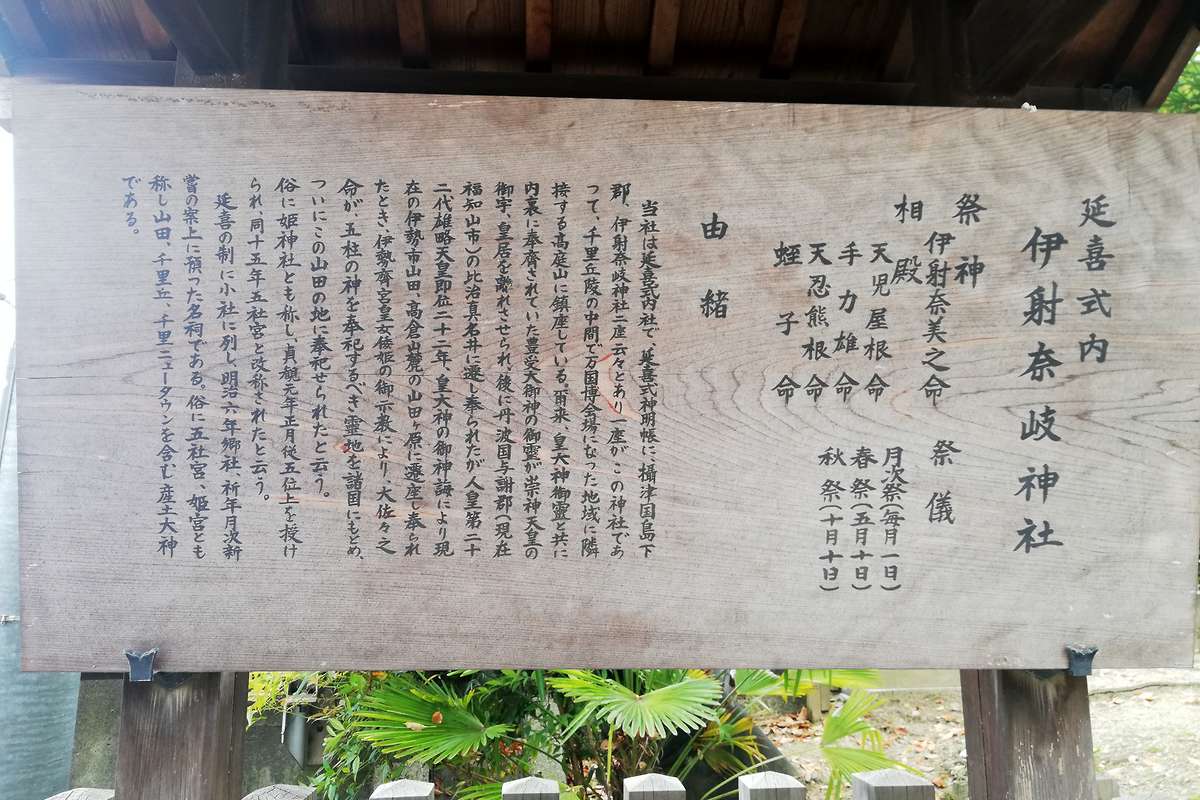 延喜式内
伊射奈岐神社
祭神
伊射奈美之命
相殿
天児屋根命
手力雄命
天忍熊で根命
蛭子命
祭儀
月次祭(毎月一日)
春祭(五月十日)
秋祭(十月十日)
由緒
当社は延喜式内社で、延喜式神明帳に、攝津国島下
郡、伊射奈岐神社二座云々とあり一座がこの神社であ
って、千里丘陵の中間で万国博会場になった地域に隣
接する高庭山に鎮座している。爾来、皇大神御霊と共に
内裏に奉齋されていた豊受大御神の御霊が崇神天皇の
御宇、皇居を離れさせられ、後に丹波国与謝郡(現在
福知山市)の比治真名井に遷し奉られたが人皇第二十
二代雄略天皇即位二十二年、皇大神の御神誨により現
在の伊勢市山田、高倉山麓の山田ヶ原に遷座し奉られ
たとき、伊勢齋宮皇女倭姫の御示教により、大佐々之
命が、五柱の神を奉祀するべき霊地を諸国にもとめ、
ついにこの山田の地に奉祀せられたと云う。
俗に姫神社とも称し、貞観元年正月従五位上を授け
られ、同十五年五社宮と改称されたと云う。
延喜の制に小社に列し明治六年郷社、祈年月次新
嘗の案上に預った名祠である。俗に五社宮、姫宮とも
称し山田、千里丘、千里ニュータウンを含む産土大神
である。